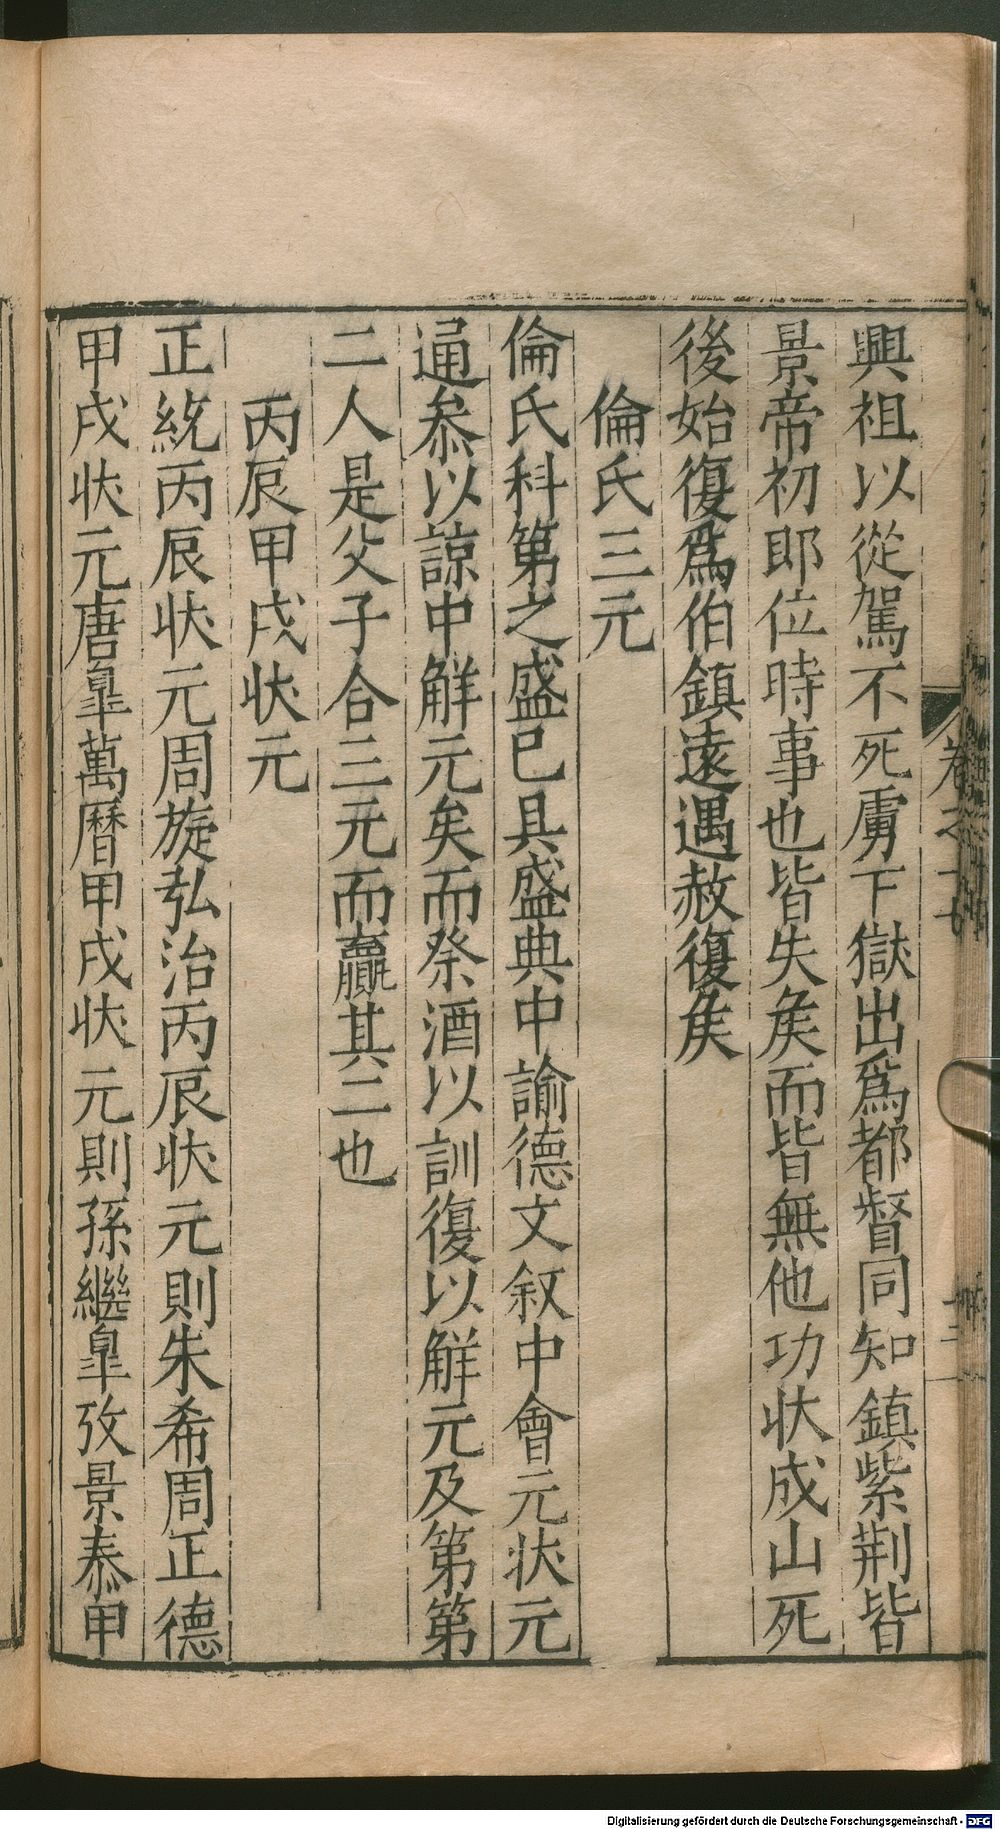 興祖以從駕不死虜下獄出爲都督同知鎮紫荆皆
景帝初即位時事也皆失矦而皆無他功状成山死
後始復爲伯鎮遠遇赦復矦
倫氏三元
倫氏科第之盛已具盛典中諭德文叙中會元状元
通叅以諒中解元矣而祭酒以訓復以解元及第第
二人是父子合三元而贏其二也
丙辰甲戌状元
正統丙辰状元周旋弘治丙辰状元則朱希周正德
甲戌状元唐臯萬曆甲戌状元則孫繼臯攷景泰甲
卷之十七
十二
Digitalisierung gefördert durch die Deutsche Forschungsgemeinschaft - DFG